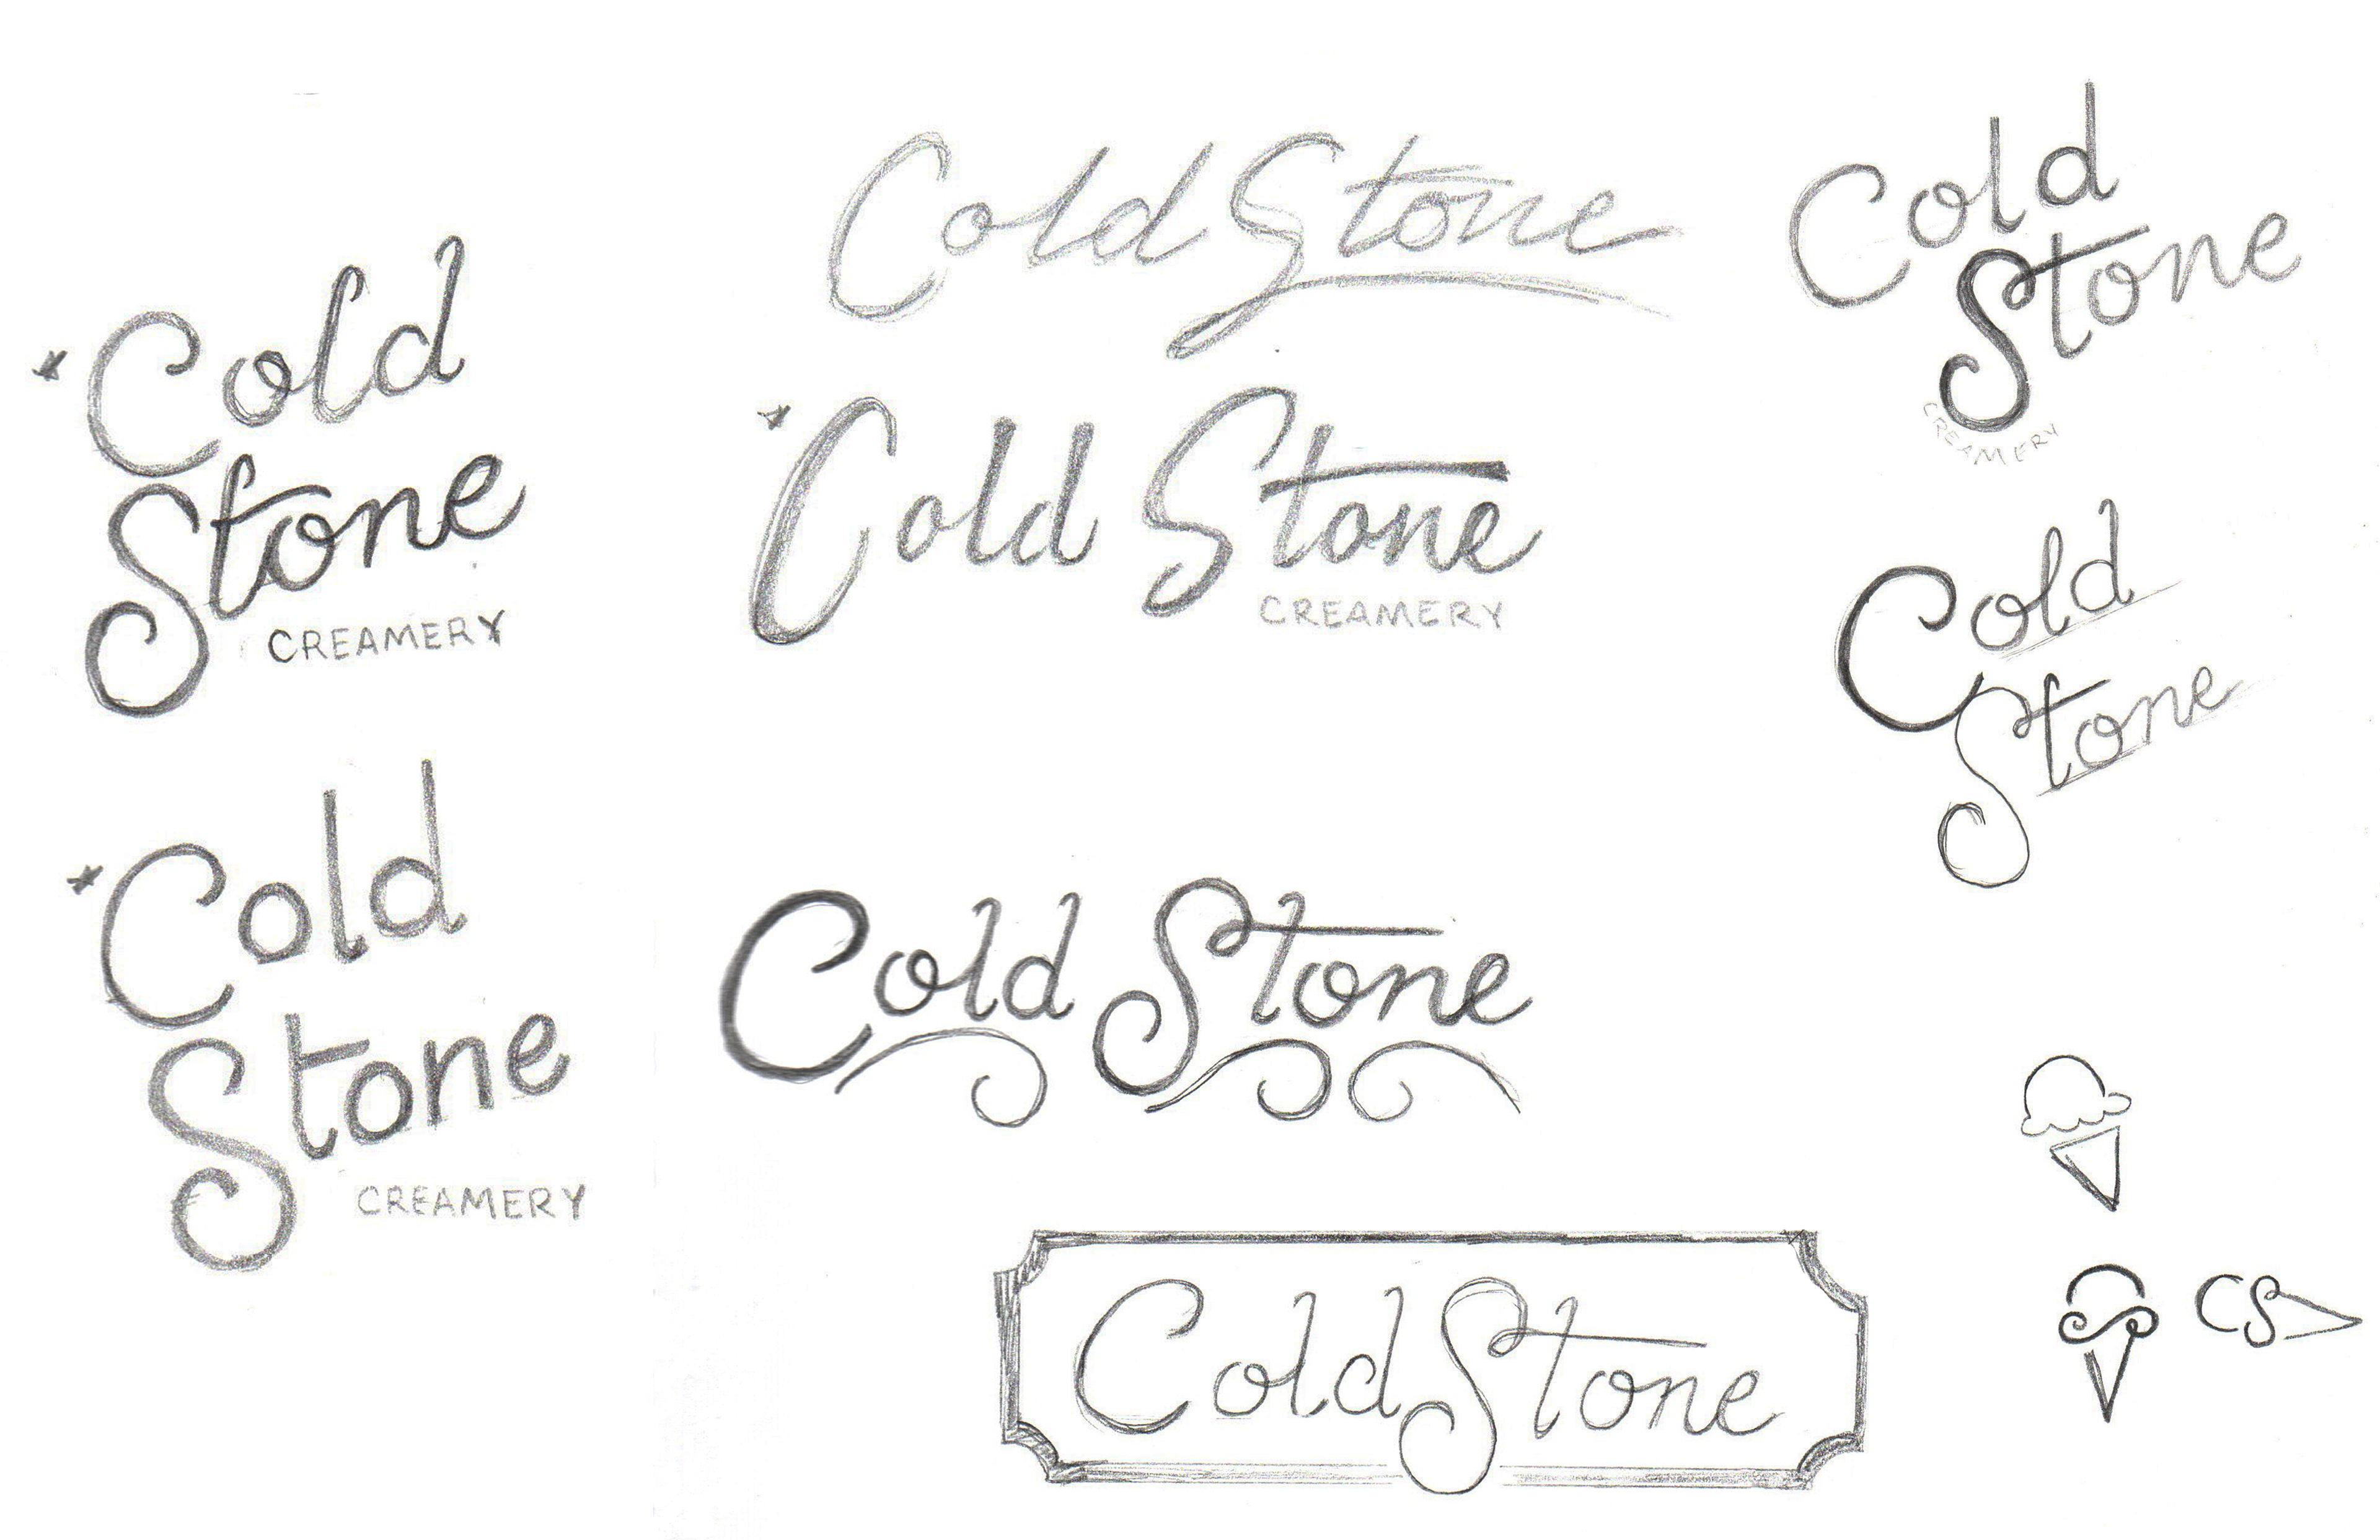 Cold
Stone
CREAMERY
Cold
Stone
CREAMERY
Cold Stone
Cold Stone
CREAMERY
Cold Stone
Cold Stone
Cold
Stone
CREAMERY
Cold
Stone
CS